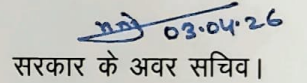 03.04.26
सरकार के अवर सचिव।